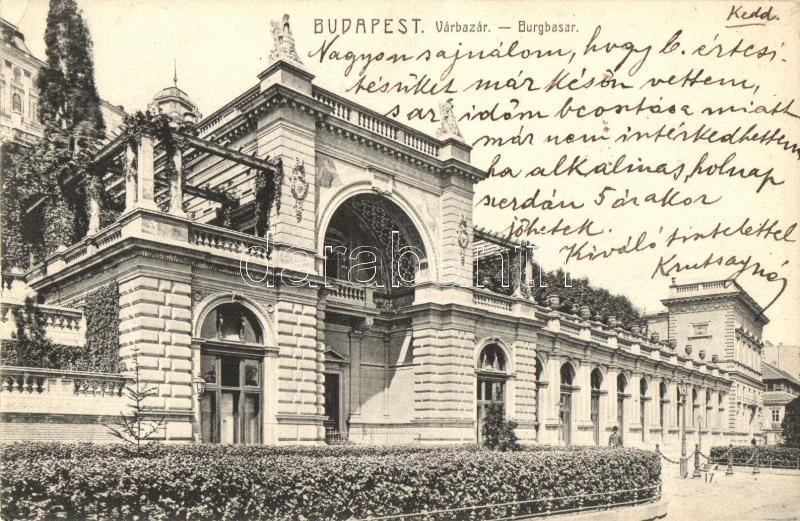 BUDAPEST. Várbazár. — Burgbasar.
Kedd.
Nagyon sajnálom, hogy b. értesi-
tésüket már késön vettem,
s az idöm beosztása miatt
már nem intézkedhettem
ha alkalmas, holnap
szerdán 5 órakor
jöhetek.
Kiváló tisztelettel
darabanth.com
17